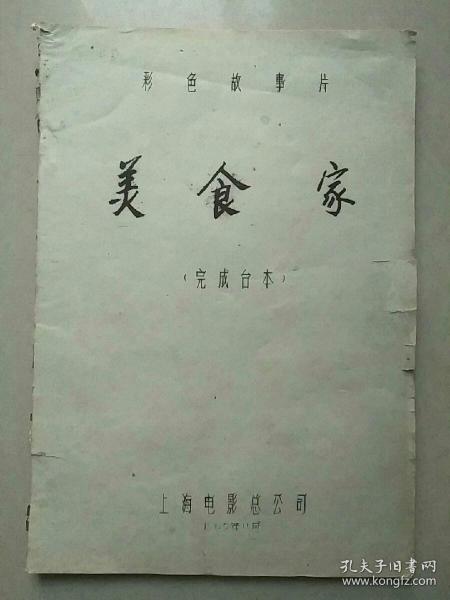 彩色故事片
美食家
（完成台本）
上海电影总公司
孔夫子旧书网
www.kongfz.com